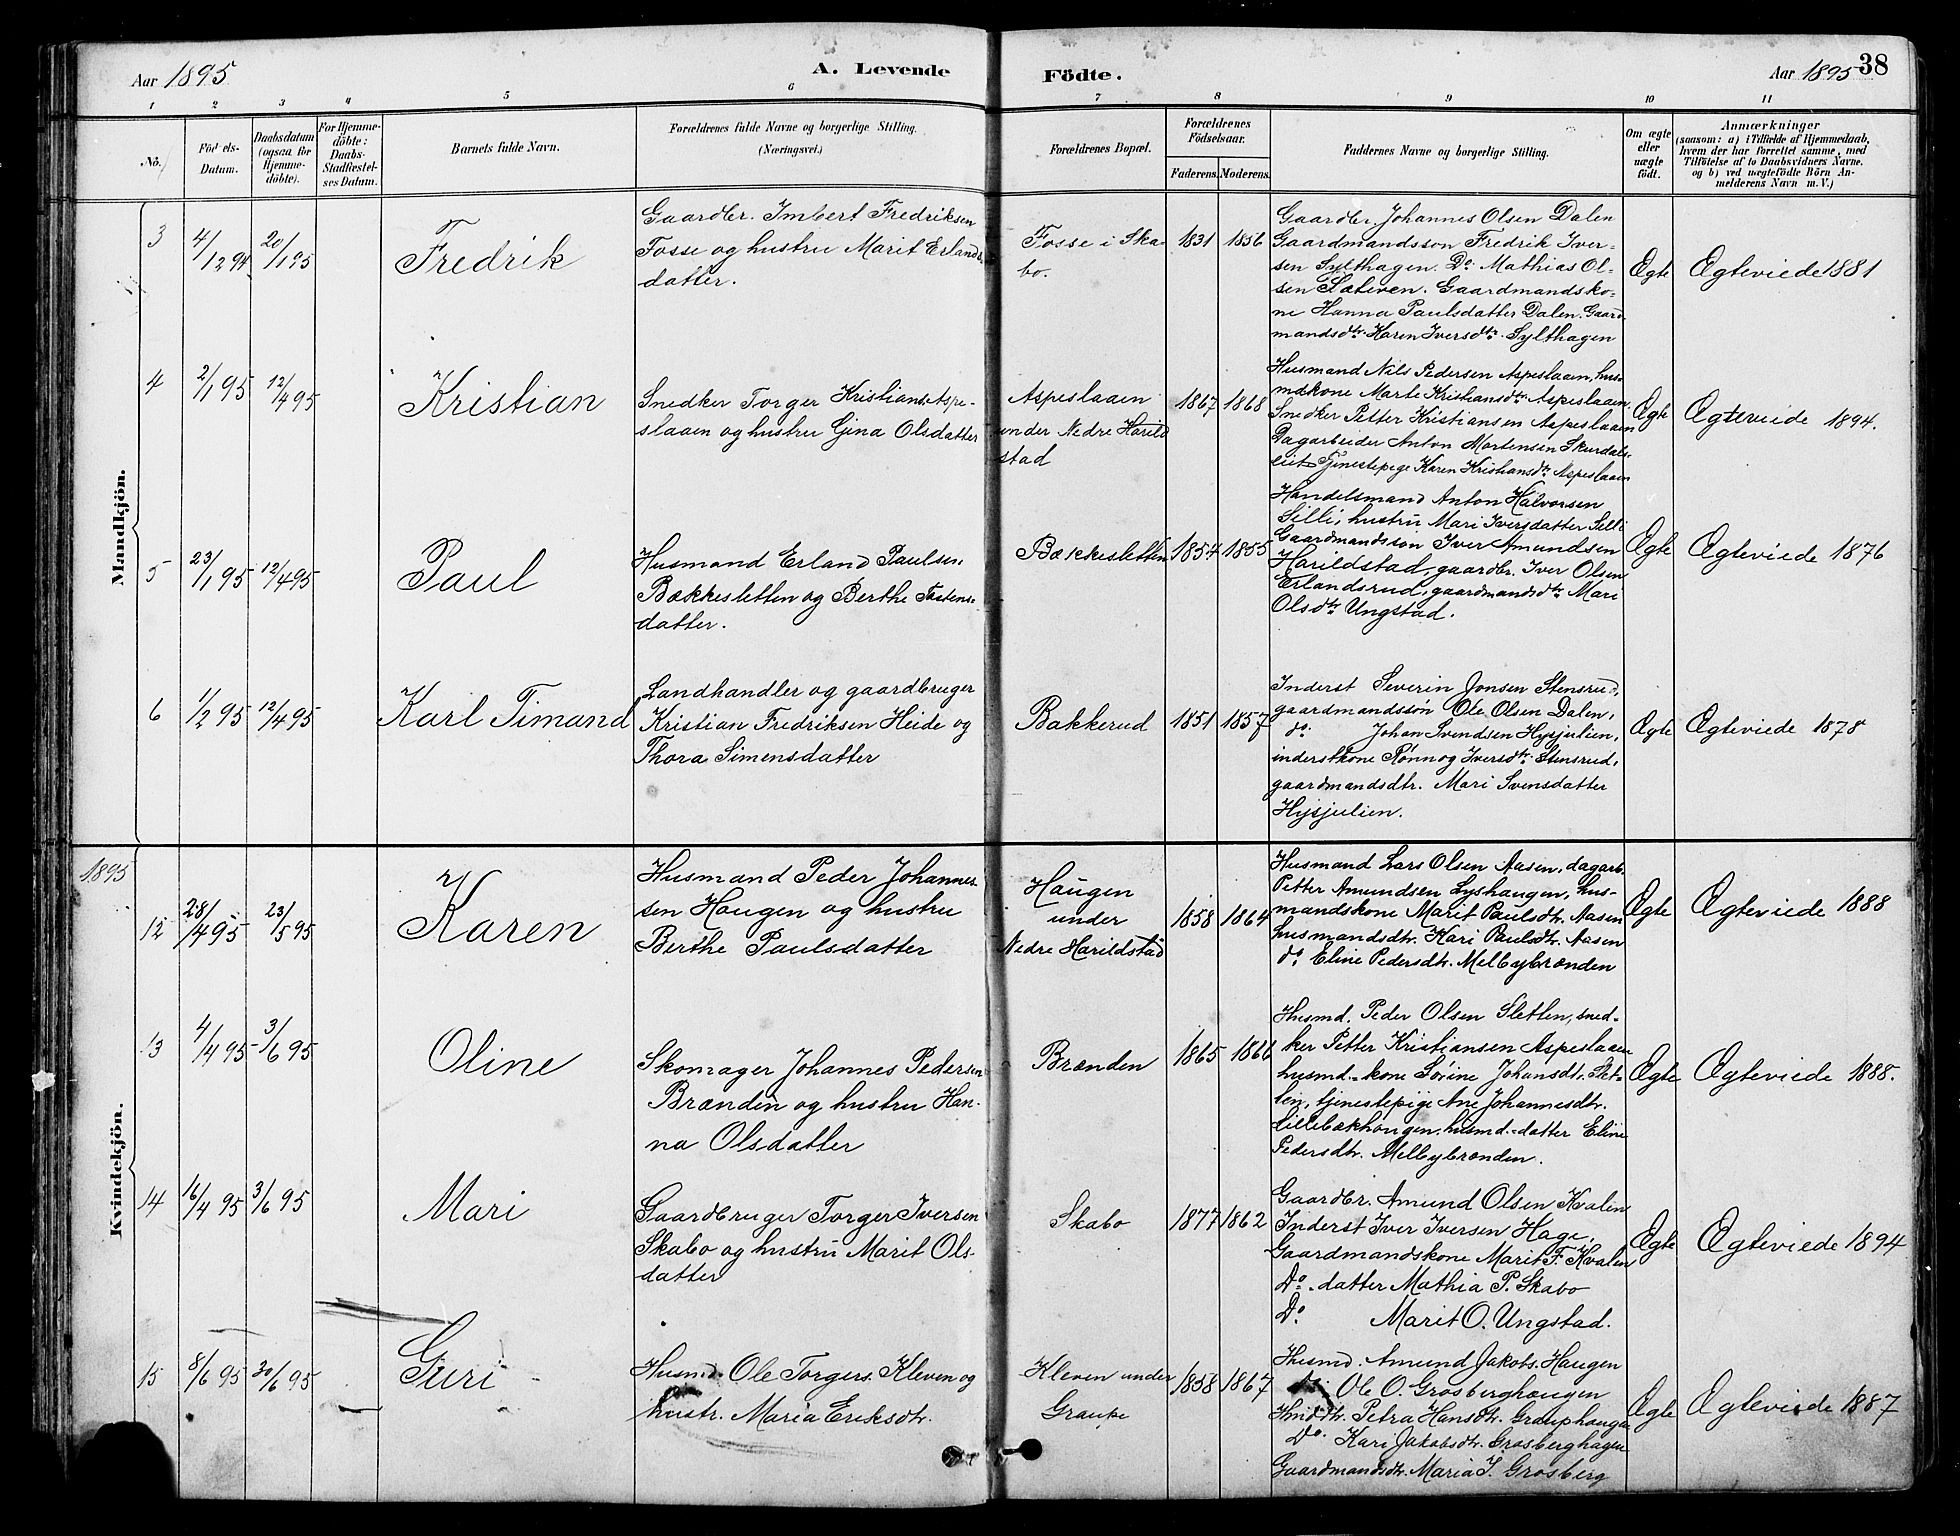 Aar 1895
A. Levende
Födte.
Aar 1895
38
1 2 3 4 5 6 7 8 9 10 11
No.
Födels-
Datum.
Daabsdatum
(ogsaa for
Hjemme-
döbte).
For Hjemme-
döbte:
Daabs-
Stadfæstel-
ses Datum.
Barnets fulde Navn.
Forældrenes fulde Navne og borgerlige Stilling.
(Næringsvei.)
Forældrenes Bopæl.
Forældrenes
Födselsaar.
Faderens. Moderens.
Faddernes Navne og borgerlige Stilling.
Om ægte
eller
uægte
födt.
Anmærkninger
(saasom: a) i Tilfælde af Hjemmedaab,
hvem der har forrettet samme, med
Tilföielse af to Daabsvidners Navne.
og b) ved uægtefödte Börn An-
melderens Navn m. V.)
Mandkjön.
3
4/12 94
20/1 95
Fredrik
Gaardbr. Imbert Fredriksen
Fosse og hustru Marit Erlands-
datter.
Fosse i Ska-
bo.
1831 1856
Gaardbr. Johannes Olsen Dalen
Gaardmandssön Fredrik Iver-
sen Sylthagen. Do: Mathias Ol-
sen Sæteren. Gaardmandsko-
ne Hanna Paulsdatter Dalen. Gaard-
mandsdtr. Karen Iversdtr. Sylthagen
Ægte
Ægteviede 1881
4
2/1 95
12/4 95
Kristian
Snedker Torger Kristians. Aspe-
slaaen og hustru Gina Olsdatter
Aspeslaaen
under Nedre Harild
stad
1867 1868
Husmand Nils Pedersen Aspeslaaen, hus-
mdskone Marte Kristiansdtr. Aspeslaaen
Snedker Petter Kristiansen Aspeslaaen
Dagarbeider Anton Mortensen Skurdals-
Tjenestepige Karen Kristiansdtr. Aspeslaaen
Ægte
Ægteviede 1894.
5
23/1 95
12/4 95
Paul
Husmand Erland Paulsen
Bækkesletten og Berthe Tostens-
datter.
Bækkesletten
1854 1855
Handelsmand Anton Halvorsen
Lilli, hustru Mari Iversdatter Lilli
Gaardmandssön Iver Amundsen
Harildstad, gaardbr. Iver Olsen
Erlandsrud, gaardmandsdtr. Mari
Olsdtr. Ungstad.
Ægte
Ægteviede 1876
6
1/2 95
12/4 95
Karl Timand
Landhandler og gaardbruger
Kristian Fredriksen Heide og
Thora Simensdatter
Bakkerud
1851 1857
Inderst Severin Jonsen Stensrud,
gaardmandssön Ole Olsen Dalen,
do. Johan Svendsen Hysjulien,
inderstkone Rønnog Iversdtr. Stensrud,
gaardmandsdtr. Mari Svensdatter
Hysjulien.
Ægte
Ægteviede 1878
1895
Kvindekjön.
12
28/4 95
23/5 95
Karen
Husmand Peder Johannes-
sen Haugen og hustru
Berthe Paulsdatter
Haugen
under
Nedre Harildstad
1858 1864
Husmand Lars Olsen Aasen, dagarb.
Petter Amundsen Lyshaugen, hus-
mandskone Marit Paulsdtr. Aasen
husmandsdtr. Kari Paulsdtr. Aasen
do Eline Pedersdtr. Melbybrænden
Ægte
Ægteviede 1888
13
4/4 95
3/6 95
Oline
Skomager Johannes Pedersen
Brænden og hustru Han-
na Olsdatter
Brænden
1865 1866
Husmd. Peder Olsen Sletten, sned-
ker Petter Kristiansen Aspeslaaen
husmd.-kone Sørine Johansdtr. Slet-
ten, tjenestepige Ane Johannesdtr.
Lillebækhaugen, husmd.-datter Eline
Pedersdtr. Melbybrænden.
Ægte
Ægteviede 1888.
14
16/4 95
3/6 95
Mari
Gaardbruger Torger Iversen
Skabo og hustru Marit Ols-
datter
Skabo
1877 1862
Gaardbr. Amund Olsen Kvalen
Inderst Iver Iversen Hage.
Gaardmandskone Marit F. Kvalen
Do. datter Mathia P. Skabo
Do Marit O. Ungstad.
Ægte
Ægteviede 1894
15
8/6 95
30/6 95
Guri
Husmd. Ole Torgers. Kleven og
hustr. Maria Eriksdtr.
Kleven under
Graupe
1858 1867
Husmd. Amund Jakobs. Haugen
Ole O. Grosberghaugen
Petra Hansdtr. Grauphaugen
Do. Kari Jakobsdtr. Grosberghagen
Gaardmandsdtr. Maria J. Grosberg
Ægte
Ægteviede 1887